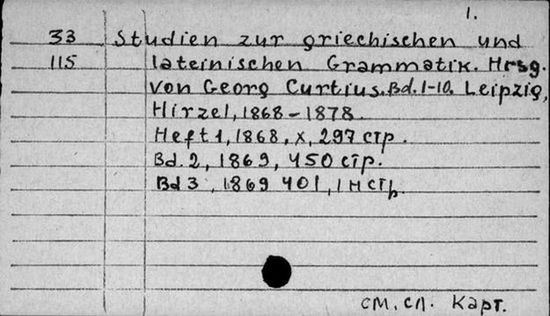 1.
33 Studien zur griechischen und
115 lateinischen Grammatik. Hrsg.
von Georg Curtius. Bd. 1-10. Leipzig,
Hirzel, 1868-1878.
Heft 1, 1868, X, 297 стр.
Bd. 2, 1869, 450 стр.
Bd 3, 1869 401, 1 н стр
см. сл. карт.